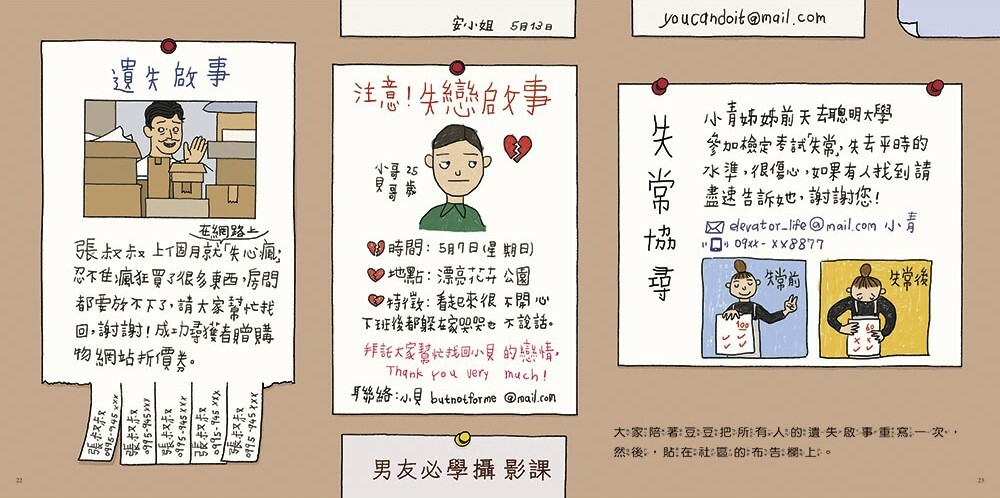 安小姐 5月13日
youcandoit@mail.com
遺失啟事
在網路上
張叔叔上個月就「失心瘋」,
忍不住瘋狂買了很多東西,房間
都要放不下了,請大家幫忙找
回,謝謝!成功尋獲者贈購
物網站折價券。
張叔叔 0995-945xxx
張叔叔 0995-945xxx
張叔叔 0995-945xxx
張叔叔 0995-945xxx
張叔叔 0995-945xxx
22
注意!失戀啟事
小貝哥哥 25歲
時間:5月7日(星期日)
地點:漂亮花卉公園
特徵:看起來很不開心
下班後都躲在家哭哭也不說話。
拜託大家幫忙找回小貝的戀情,
Thank you very much!
聯絡:小貝 butnotforme@mail.com
男友必學攝影課
失常協尋
小青姊姊前天去聰明大學
參加檢定考試「失常」,失去平時的
水準,很傷心,如果有人找到請
盡速告訴她,謝謝您!
elevator_life@mail.com 小青
09xx-xx8877
失常前
100
失常後
60
大家陪著豆豆把所有人的遺失啟事重寫一次,
然後,貼在社區的布告欄上。
23